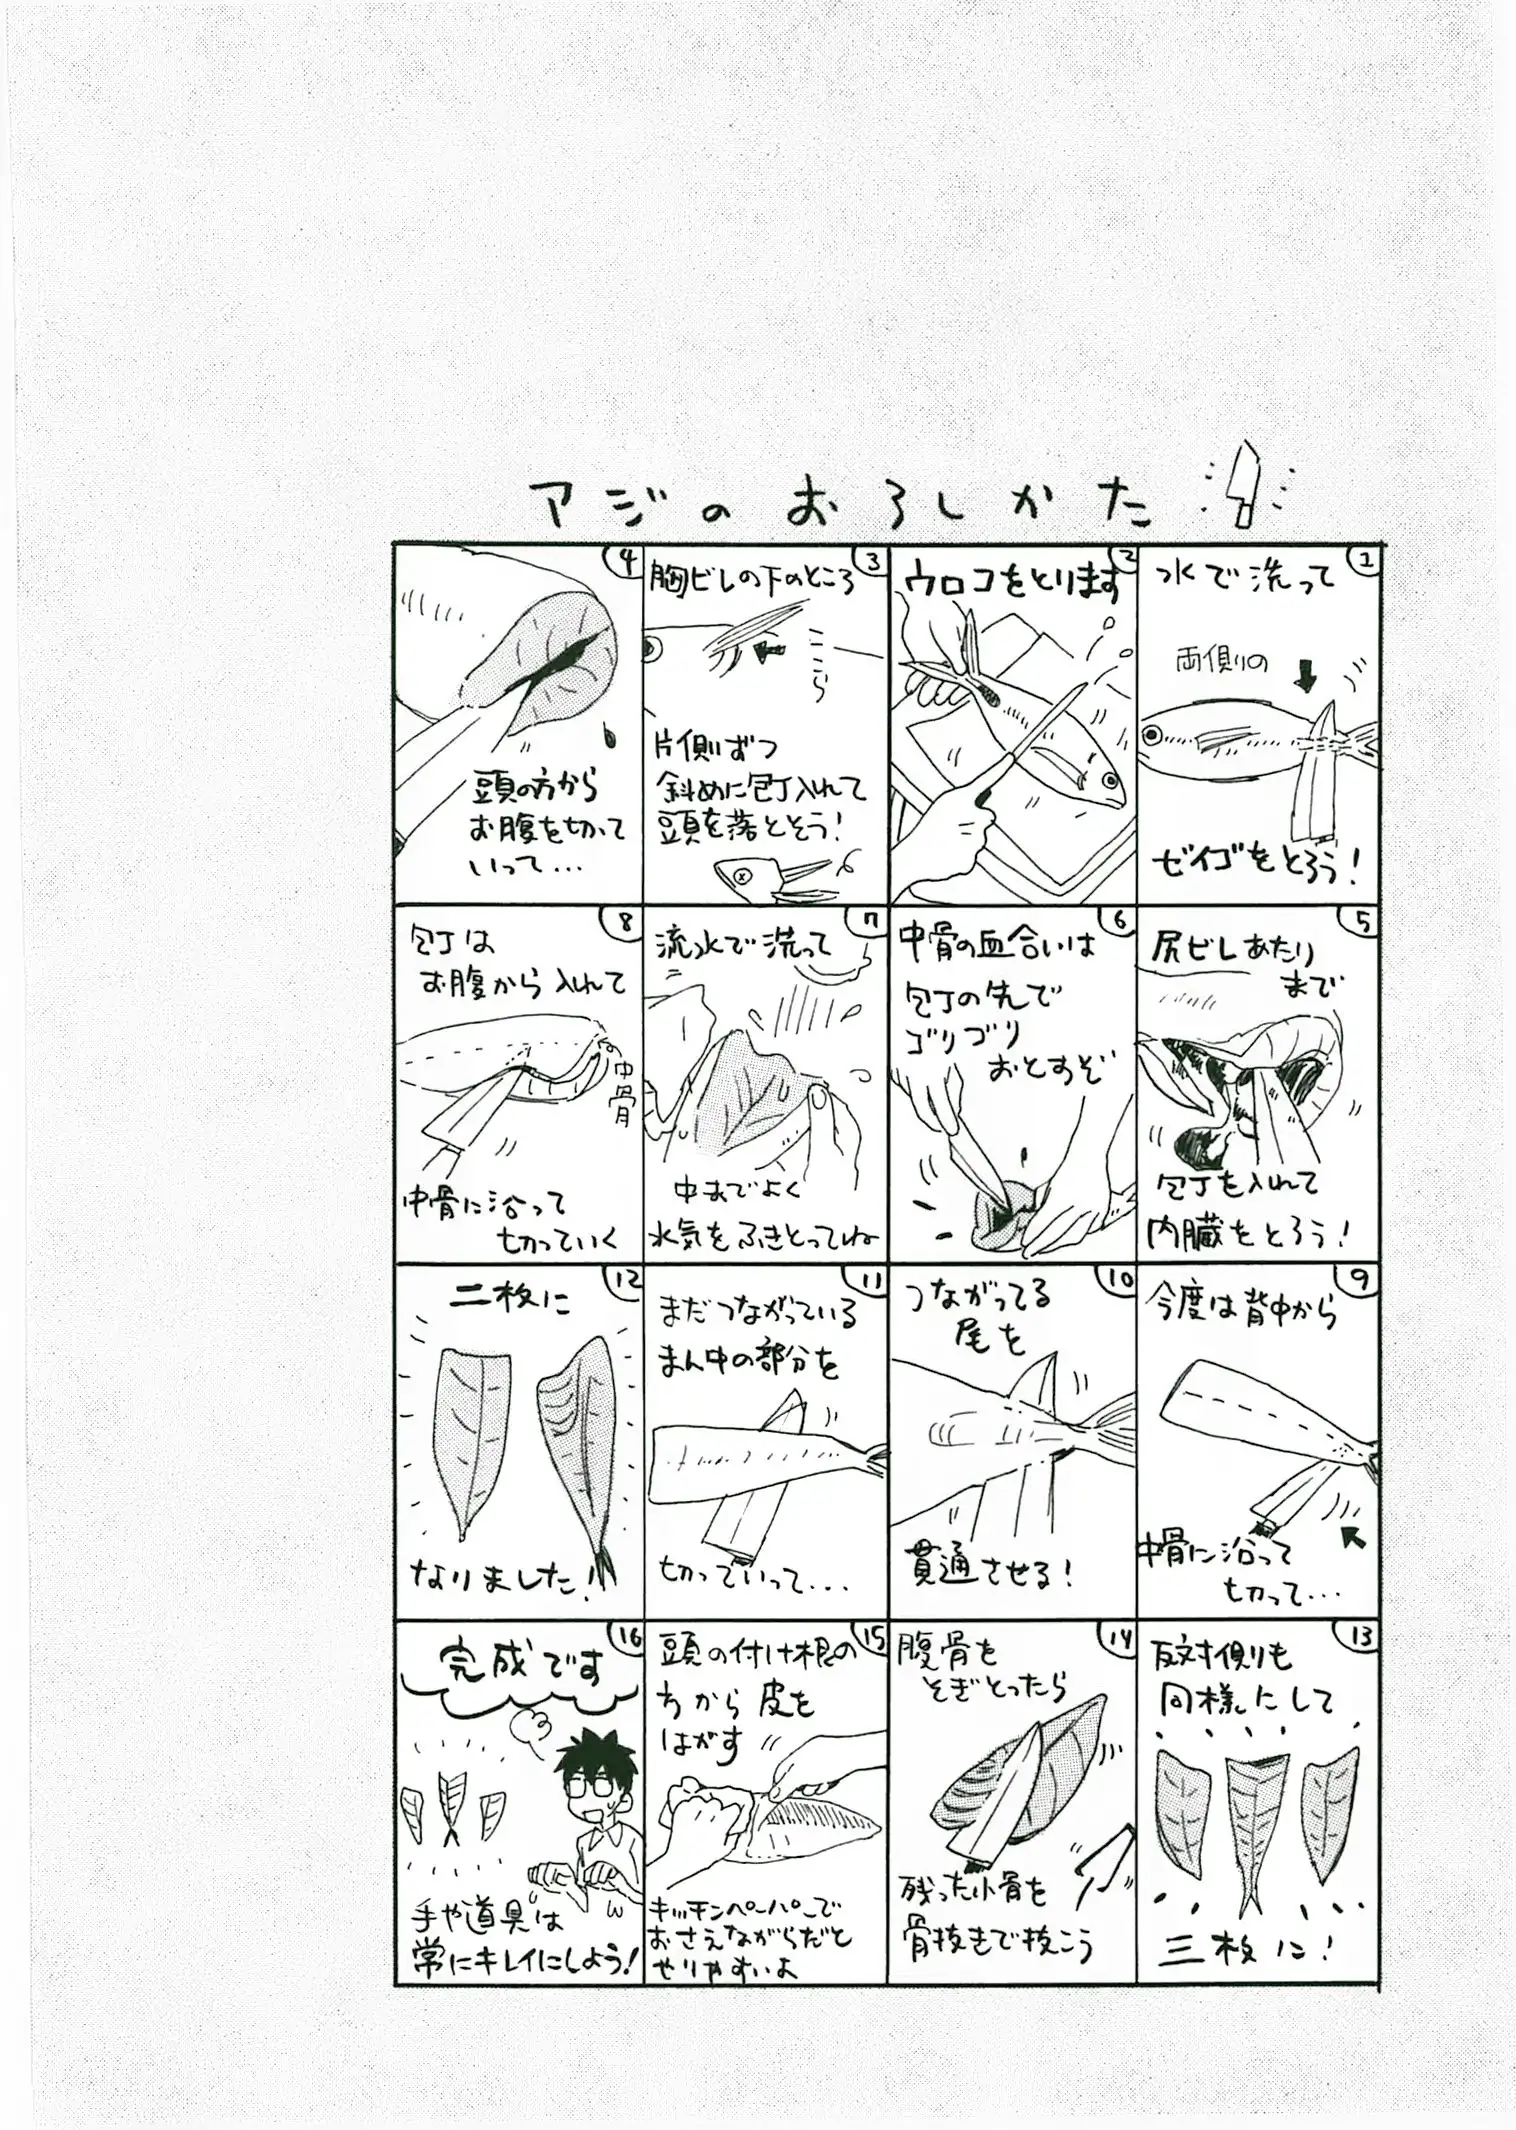 アジのおろしかた
1
水で洗って
両側の
ゼイゴをとろう!
2
ウロコをとります
3
胸ビレの下のところ
ここら
片側ずつ
斜めに包丁入れて
頭を落とそう!
4
頭の方から
お腹を切って
いって…
5
尻ビレあたり
まで
包丁を入れて
内臓をとろう!
6
中骨の血合いは
包丁の先で
ゴリゴリ
おとすぞ
7
流水で洗って
中までよく
水気をふきとってね
8
包丁は
お腹から入れて
中骨
中骨に沿って
切っていく
9
今度は背中から
中骨に沿って
切って…
10
つながってる
尾を
貫通させる!
11
まだつながっている
まん中の部分を
切っていって…
12
二枚に
なりました!
13
反対側も
同様にして
三枚に!
14
腹骨を
そぎとったら
残った小骨を
骨抜きで抜こう
15
頭の付け根の
方から皮を
はがす
キッチンペーパーで
おさえながらだと
やりやすいよ
16
完成です
手や道具は
常にキレイにしよう!